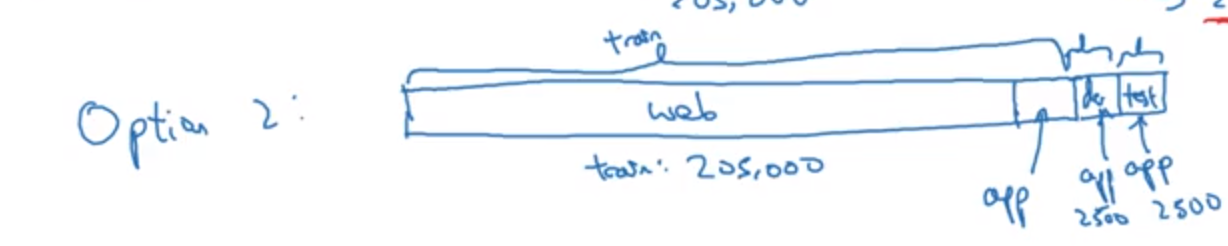 205,000
train
Option 2:
web
dev
test
train: 205,000
app
app
2500
app
2500